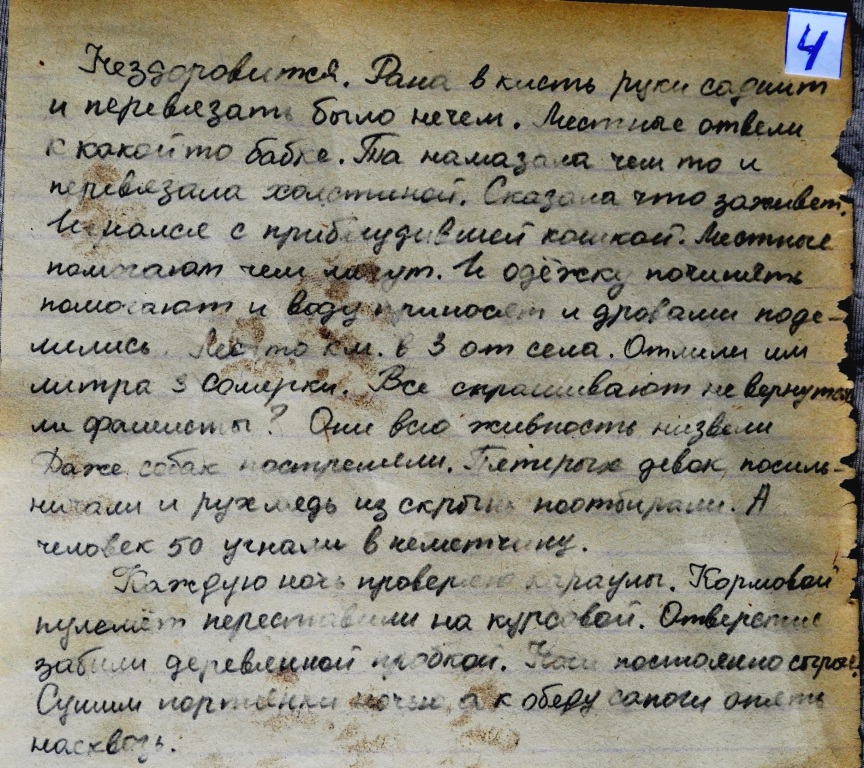 4
Нездоровится. Рана в кисть руки саднит
и перевязать было нечем. Местные отвели
к какой то бабке. Та намазала чем то и
перевязала холстиной. Сказала что заживет.
Игрался с приблудившей кошкой. Местные
помогают чем могут. И одёжку починять
помогают и воду приносят и дровами поде-
лились. Лес то км. в 3 от села. Отлили им
литра 3 солярки. Все спрашивают не вернутся
ли фашисты? Они всю живность низвели
Даже собак постреляли. Пятерых девок посиль-
ничали и рухлядь из скрынь поотбирали. А
человек 50 угнали в неметчину.
Каждую ночь проверяю караулы. Кормовой
пулемёт переставили на курсовой. Отверстие
забили деревянной пробкой. Ноги постоянно сырые.
Сушим портянки ночью, а к обеду сапоги опять
насквозь.